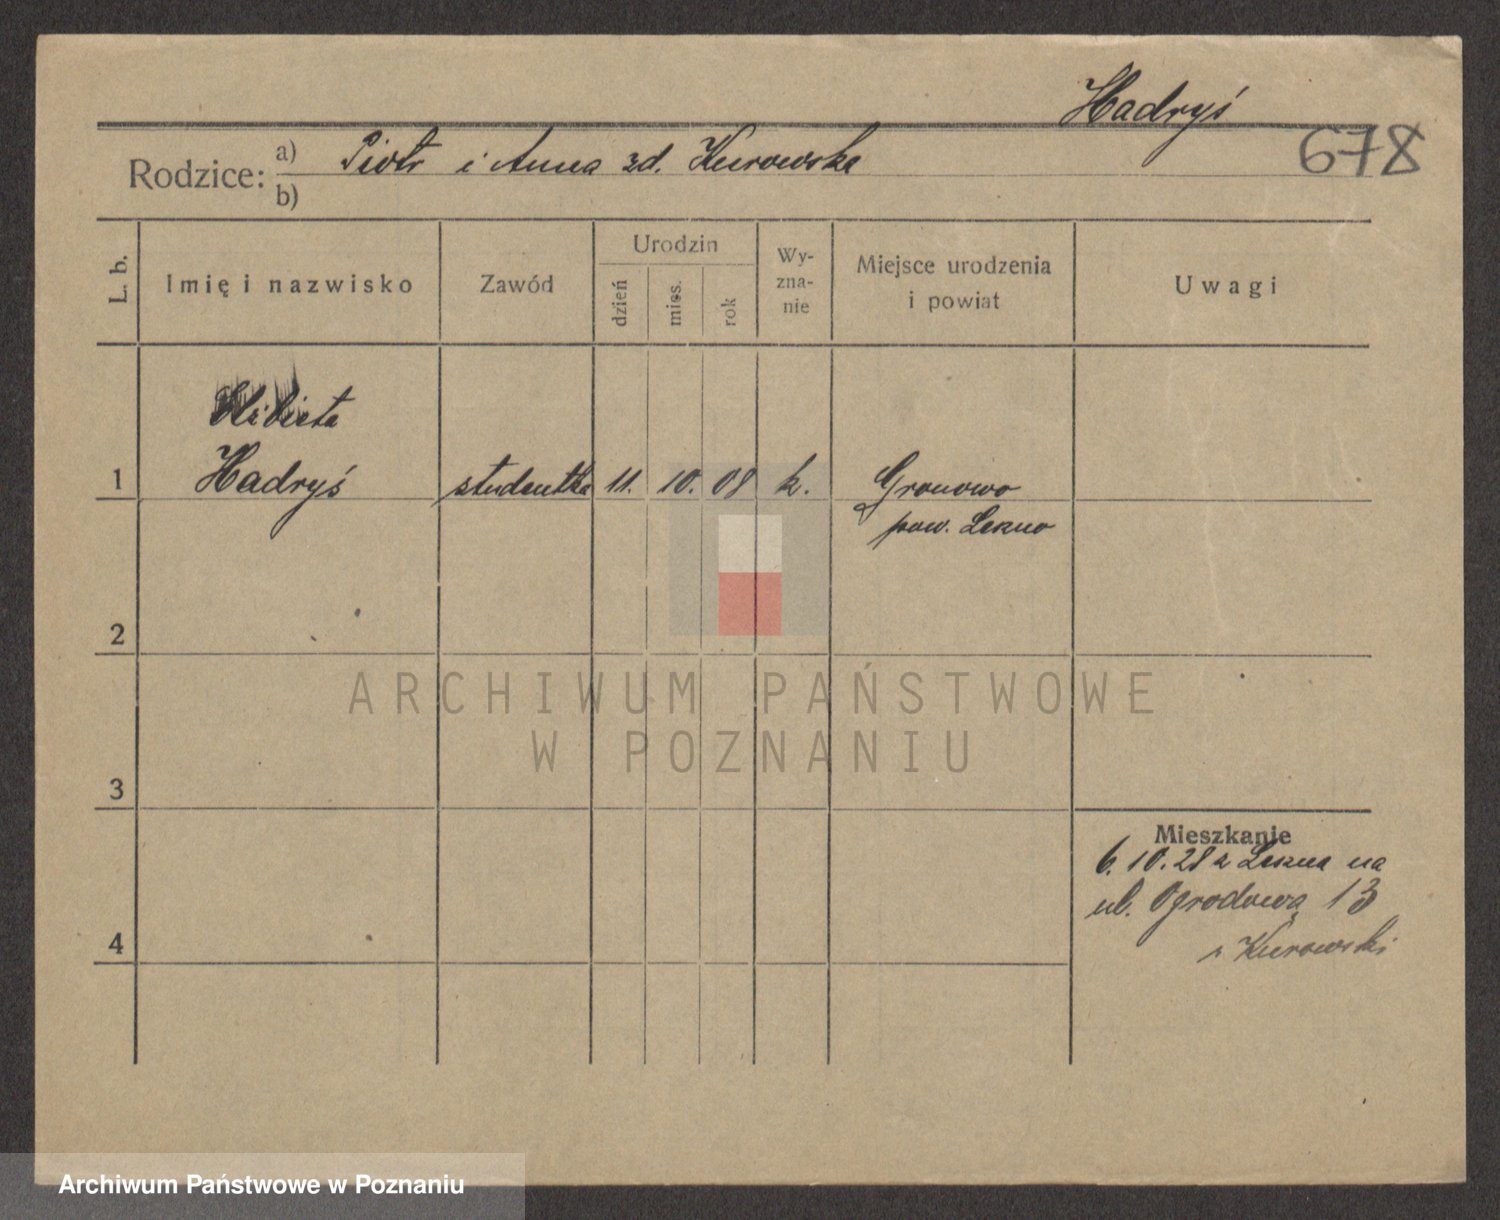 Hadryś
678
Rodzice: a) Piotr i Anna zd. Kurowska
b)
L. b.
Imię i nazwisko
Zawód
Urodzin
dzień
mies.
rok
Wy-
zna-
nie
Miejsce urodzenia
i powiat
Uwagi
Elżbieta
1 Hadryś studentka 11. 10. 08 k. Gronowo
pow. Leszno
2
3
4
Mieszkanie
6.10.28 z Leszna na
ul. Ogrodową 13
Kurowski
ARCHIWUM PAŃSTWOWE
W POZNANIU
Archiwum Państwowe w Poznaniu